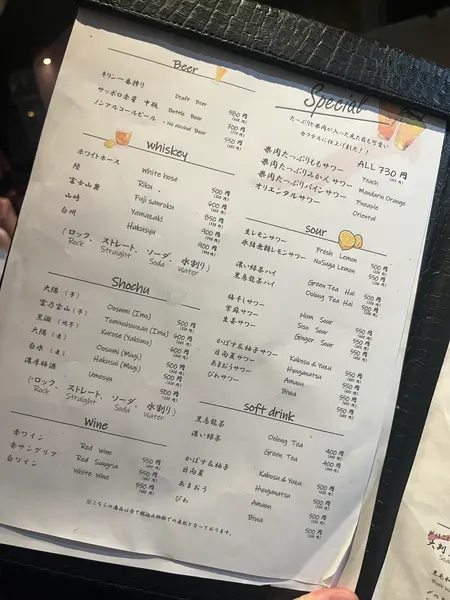 Beer
キリン一番搾り Draft Beer 580円
サッポロ赤星 中瓶 Bottle Beer 700円
ノンアルコールビール ・No alcohol Beer 550円
whiskey
ホワイトホース White hose 500円
陸 Riku 500円
富士山麓 Fuji sanroku 600円
山崎 Yamazaki
白州 Hakusyu 900円
(ロック、ストレート、ソーダ、水割り)
Rock Straight Soda Water
Shochu
大隅(芋) Oosumi (Imo) 500円
富乃宝山(芋) 600円
Kurose (Yakiimo) 600円
大隅(麦) Oosumi (Mugi) 500円
白水(麦) Hakusui (Mugi) 500円
濃厚梅酒 Umesyu 500円
(ロック、ストレート、ソーダ、水割り)
Rock Straight Soda Water
Wine
赤ワイン Red Wine 550円
赤サングリア Red Sangria 550円
白ワイン White Wine 550円
Special
たっぷりと果肉が入った見た目も可愛い
カクテルに仕上げました!!
ALL 730円
果肉たっぷりももサワー Peach
果肉たっぷりみかんサワー Mandarin Orange
果肉たっぷりパインサワー Pineaple
オリエンタルサワー Oriental
sour
生レモンサワー Fresh Lemon 500円
氷結無糖レモンサワー NoSuga Lemon 500円
濃い緑茶ハイ Green Tea Hai 500円
黒烏龍茶ハイ Oolong Tea Hai 500円
梅干しサワー Plum Sour 550円
紫蘇サワー Siso Sour 550円
生姜サワー Ginger Sour 550円
かぼす&柚子サワー Kabosu & Yuzu 550円
日向夏サワー Hyuganatsu 550円
あまおうサワー Amaou 550円
びわサワー Biwa 550円
soft drink
黒烏龍茶 Oolong Tea 400円
濃い緑茶 Green Tea 400円
かぼす&柚子 Kabosu & Yuzu 500円
日向夏 Hyuganatsu 500円
あまおう Amaou 500円
びわ Biwa 500円